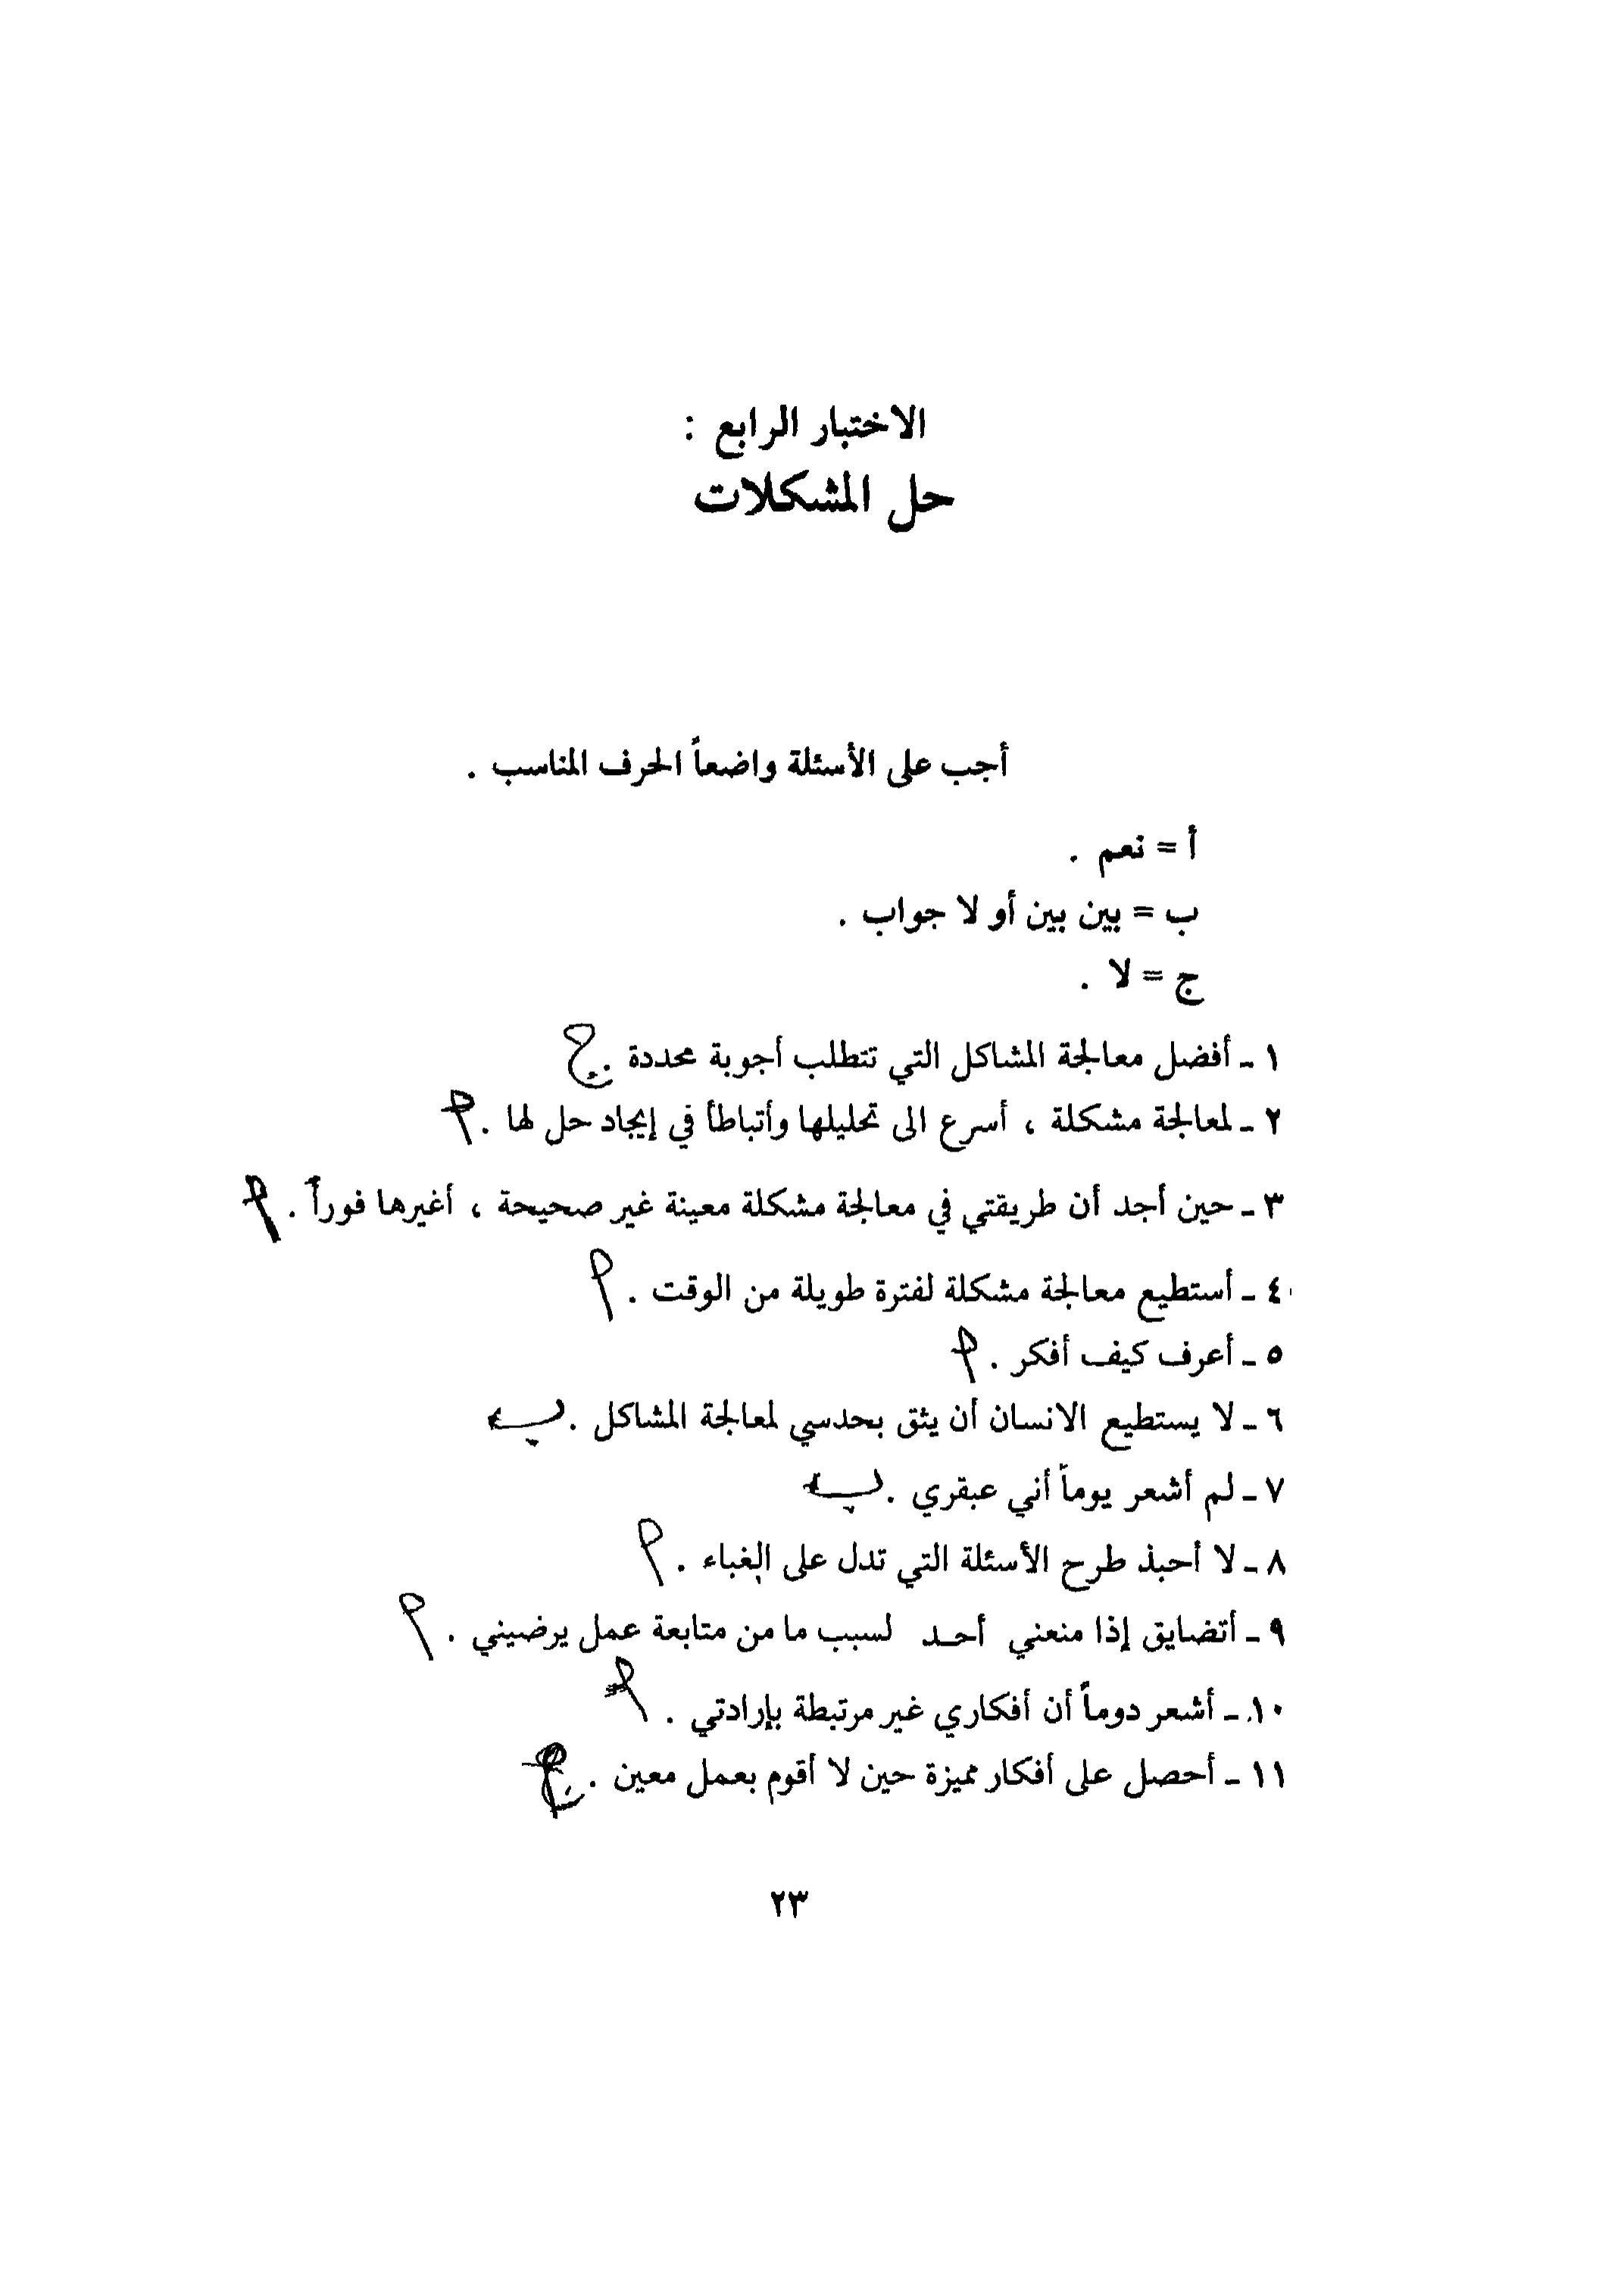 الاختبار الرابع :
حل المشكلات
أجب على الأسئلة واضعاً الحرف المناسب .
أ = نعم .
ب = بين بين أو لا جواب .
ج = لا .
١ ـ أفضل معالجة المشاكل التي تتطلب أجوبة محددة . ج
٢ ـ لمعالجة مشكلة ، أسرع الى تحليلها وأتباطأ في إيجاد حل لها . أ
٣ ـ حين أجد أن طريقتي في معالجة مشكلة معينة غير صحيحة ، أغيرها فوراً . أ
٤ ـ أستطيع معالجة مشكلة لفترة طويلة من الوقت . أ
٥ ـ أعرف كيف أفكر . أ
٦ ـ لا يستطيع الانسان أن يثق بحدسي لمعالجة المشاكل . ب
٧ ـ لم أشعر يوماً أني عبقري . ب
٨ ـ لا أحبذ طرح الأسئلة التي تدل على الغباء . أ
٩ ـ أتضايق إذا منعني أحد لسبب ما من متابعة عمل يرضيني . أ
١٠ ـ أشعر دوماً أن أفكاري غير مرتبطة بإرادتي . أ
١١ ـ أحصل على أفكار مميزة حين لا أقوم بعمل معين .
٢٣